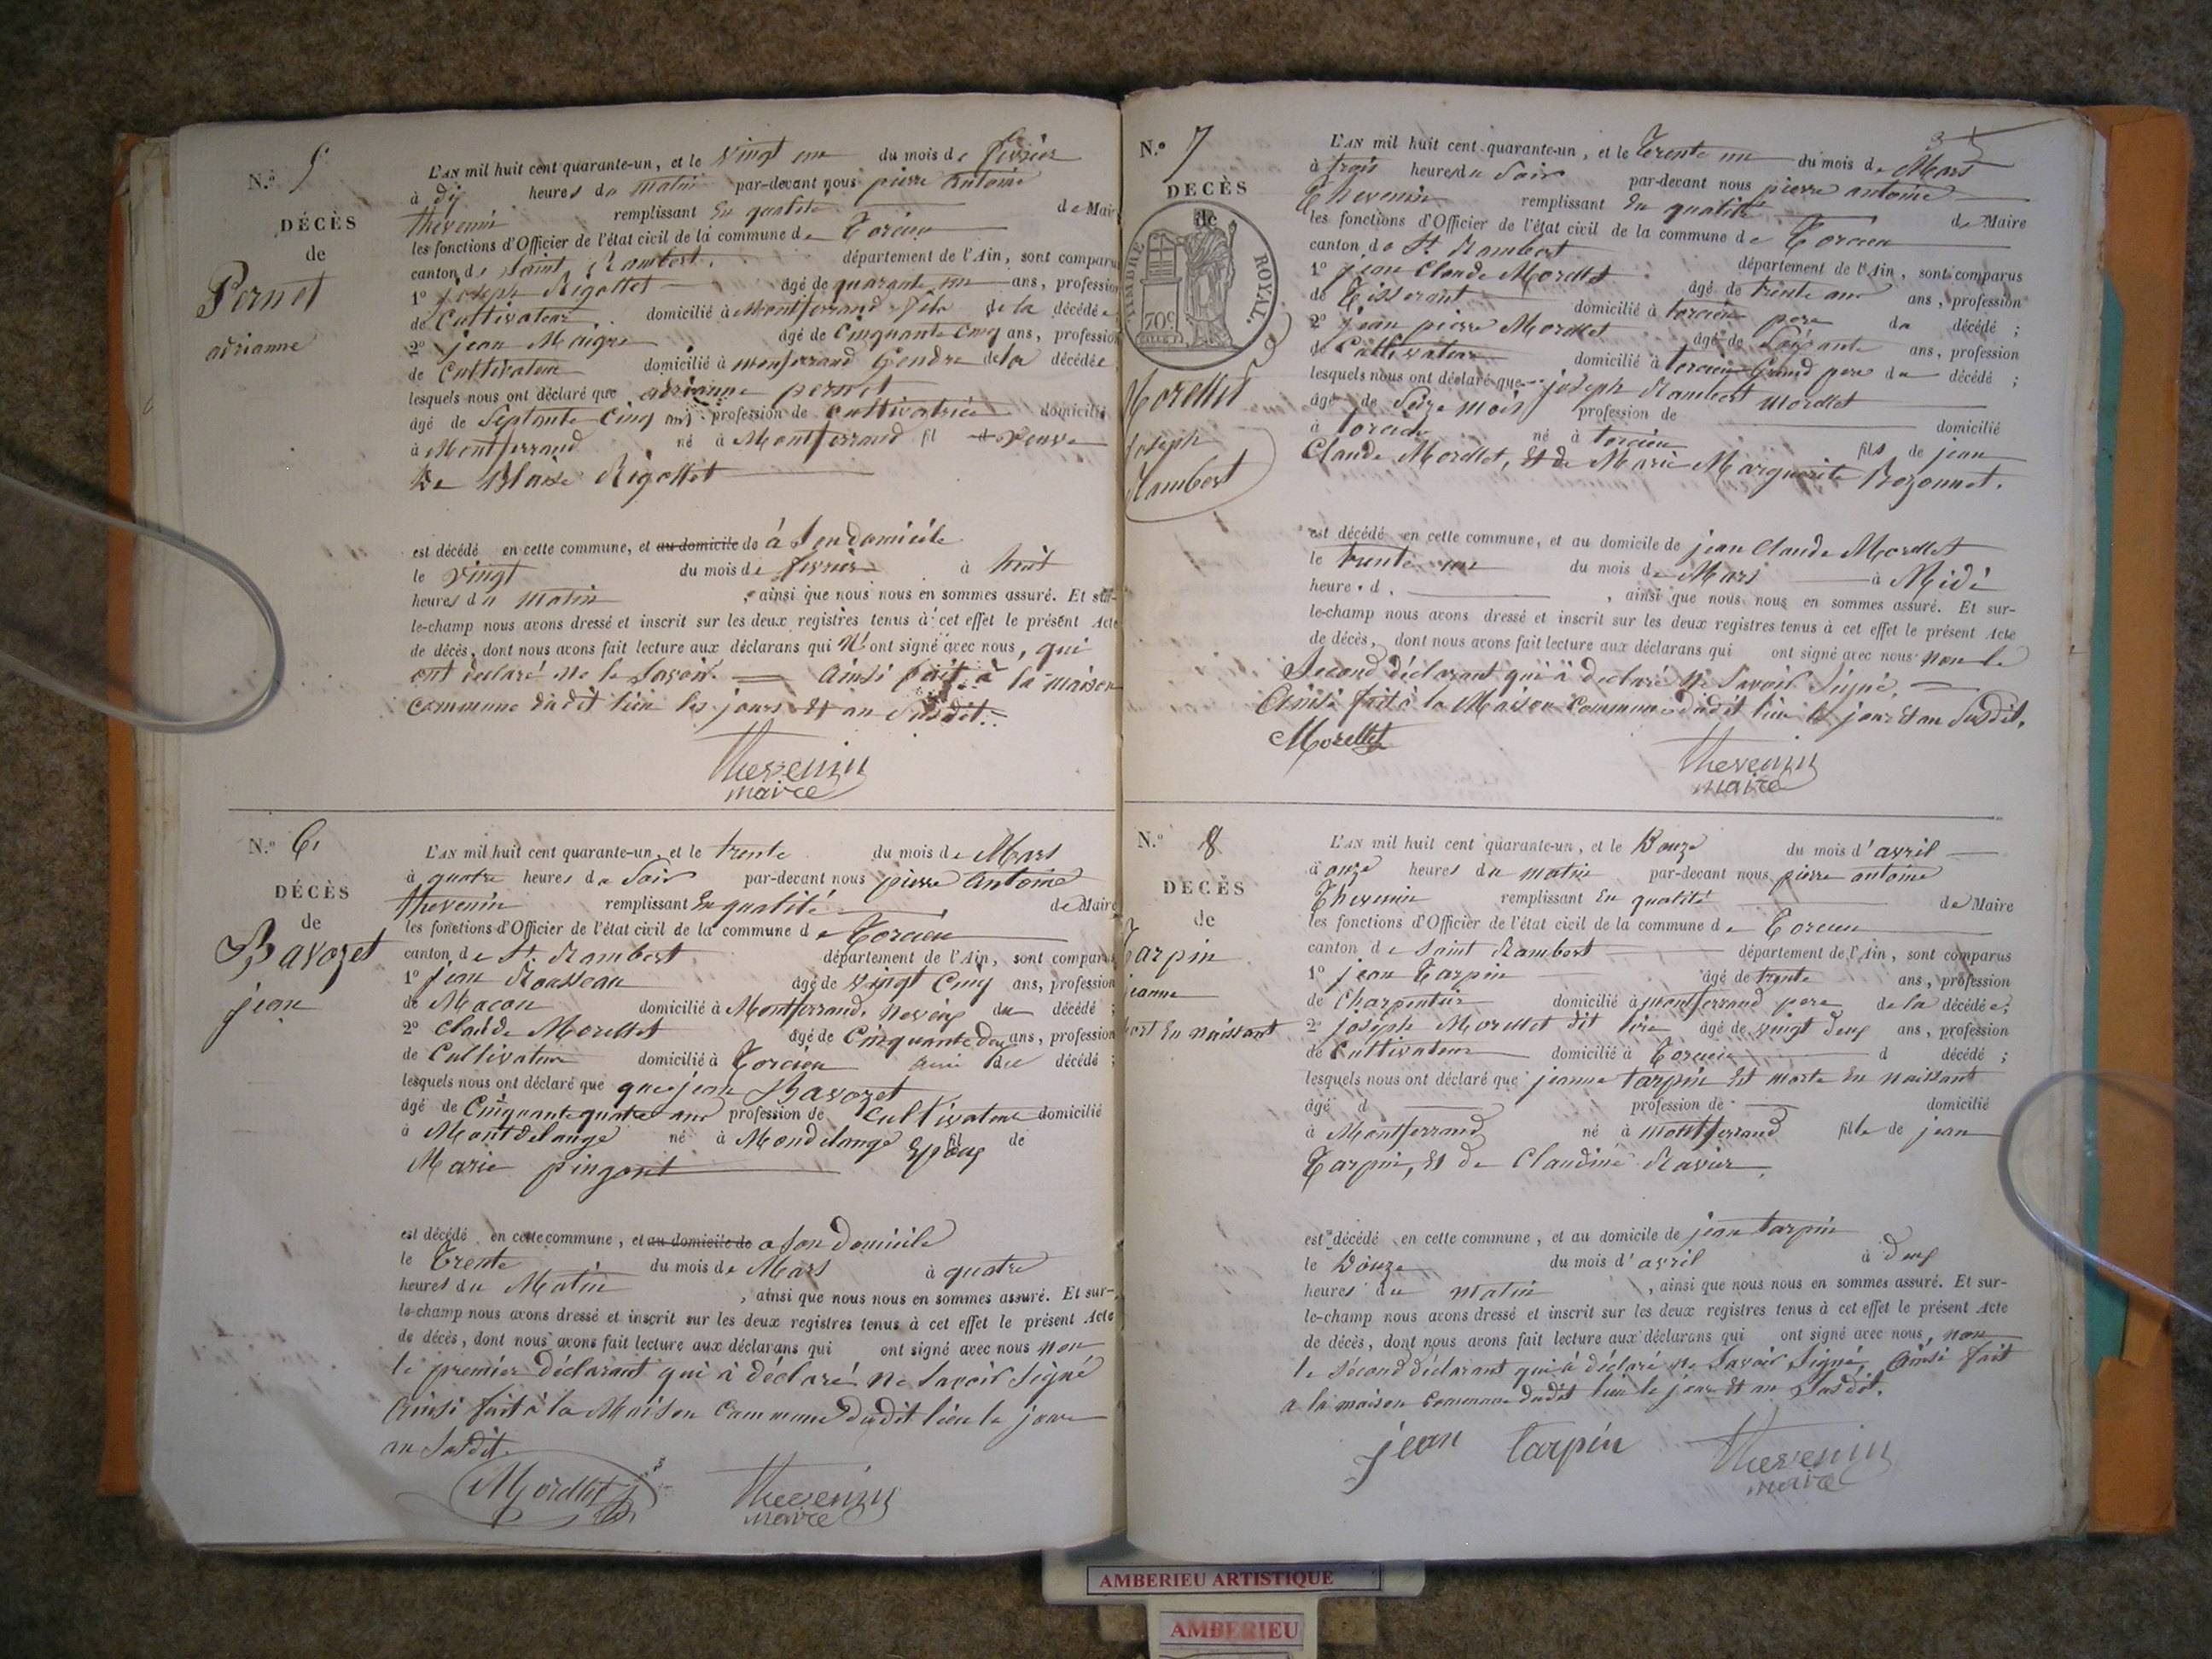 N.º 5
DÉCÈS
de
Pernet
adrianne
L'AN mil huit cent quarante-un, et le vingt un du mois de fevrier
à dix heures du matin par-devant nous pierre antoine
thevenin remplissant en qualité de Maire
les fonctions d'Officier de l'état civil de la commune de Torcieu
canton de Saint Rambert. département de l'Ain, sont comparus
1º joseph Rigollet âgé de quarante un ans, profession
de Cultivateur domicilié à Montferrand fils de la décédée
2º jean Maigre âgé de Cinquante Cinq ans, profession
de Cultivateur domicilié à monferrand Gendre de la décédée
lesquels nous ont déclaré que adrianne pernet
âgé de Septante Cinq ans profession de Cultivatrice domicilié
à Montferrand né à Montferrand fil d veuve
De Blaise Rigollet
est décédé en cette commune, et au domicile de à Son domicile
le vingt du mois de fevrier à huit
heures du matin, ainsi que nous nous en sommes assuré. Et sur-
le-champ nous avons dressé et inscrit sur les deux registres tenus à cet effet le présent Acte
de décès, dont nous avons fait lecture aux déclarans qui n'ont signé avec nous, qui
ont declaré ne le Savoir. Ainsi fait à la maison
commune dudit lieu les jours et an Susdit.
Thevenin
maire
N.º 6
DÉCÈS
de
Bavozet
jean
L'AN mil huit cent quarante-un, et le trente du mois de Mars
à quatre heures du Soir par-devant nous pierre Antoine
thevenin remplissant En qualité de Maire
les fonctions d'Officier de l'état civil de la commune de Torcieu
canton de St. Rambert département de l'Ain, sont comparus
1º jean Rousseau âgé de vingt Cinq ans, profession
de Macon domicilié à Montferrand, neveux du décédé ;
2º Claude Morellet âgé de Cinquante deux ans, profession
de Cultivateur domicilié à Torcieu ami du décédé ;
lesquels nous ont déclaré que que jean Bavozet
âgé de Cinquante quatre ans profession de Cultivateur domicilié
à Montdelange né à Mondelange fil Epoux de
Marie pingont
est décédé en cette commune, et au domicile de a Son Domicile
le Trente du mois de Mars à quatre
heures du Matin, ainsi que nous nous en sommes assuré. Et sur-
le-champ nous avons dressé et inscrit sur les deux registres tenus à cet effet le présent Acte
de décès, dont nous avons fait lecture aux déclarans qui ont signé avec nous non
le premier Déclarant qui à déclaré ne Savoir Signé
Ainsi fait à la Maison Commune Dudit lieu le jour
an Susdit.
Morellet
Thevenin
maire
35
N.º 7
DÉCÈS
de
TIMBRE ROYAL.
70c
Morellet
Joseph
Rambert
L'AN mil huit cent quarante-un, et le Trente un du mois de Mars
à trois heures du Soir par-devant nous pierre antoine
Thevenin remplissant En qualité de Maire
les fonctions d'Officier de l'état civil de la commune de Torcieu
canton de St Rambert département de l'Ain, sont comparus
1º jean Claude Morellet âgé de trente ans ans, profession
de Tisserant domicilié à torcieu pere du décédé ;
2º jean pierre Morellet âgé de Soixante ans, profession
de Cultivateur domicilié à torcieu Grand pere du décédé ;
lesquels nous ont déclaré que joseph Rambert Morellet
âgé de Seize mois profession de domicilié
à torcieu né à torcieu fils de jean
Claude Morellet, Et de Marie Marguerite Bozonnet.
est décédé en cette commune, et au domicile de jean Claude Morellet
le trente un du mois de Mars à Midi
heure d , ainsi que nous nous en sommes assuré. Et sur-
le-champ nous avons dressé et inscrit sur les deux registres tenus à cet effet le présent Acte
de décès, dont nous avons fait lecture aux déclarans qui ont signé avec nous non le
Second déclarant qui à declaré ne Savoir Signé.
Ainsi fait à la Maison Commune dudit lieu le jour Et an Susdit.
Morellet
Thevenin
maire
N.º 8
DÉCÈS
de
Tarpin
jeanne
mort En naissant
L'AN mil huit cent quarante-un, et le Douze du mois d'avril
à onze heures du matin par-devant nous pierre antoine
Thevenin remplissant En qualité de Maire
les fonctions d'Officier de l'état civil de la commune de Torcieu
canton de Saint Rambert département de l'Ain, sont comparus
1º jean Tarpin âgé de trente ans, profession
de Charpentier domicilié à montferrand pere de la décédée;
2º joseph Morellet dit âgé de vingt deux ans, profession
de Cultivateur domicilié à Torcieu d décédé ;
lesquels nous ont déclaré que jeanne tarpin Est morte En naissant
âgé d profession de domicilié
à Montferrand né à montferrand fille de jean
Tarpin, Et de Claudine Ravier.
est décédé en cette commune, et au domicile de jean tarpin
le Douze du mois d'avril à deux
heures du matin, ainsi que nous nous en sommes assuré. Et sur-
le-champ nous avons dressé et inscrit sur les deux registres tenus à cet effet le présent Acte
de décès, dont nous avons fait lecture aux déclarans qui ont signé avec nous, non
le Second déclarant qui à déclaré ne Savoir Signé. Ainsi fait
a la maison Commune dudit lieu le jour Et an Susdit.
jean tarpin
Thevenin
maire
AMBERIEU ARTISTIQUE
AMBERIEU